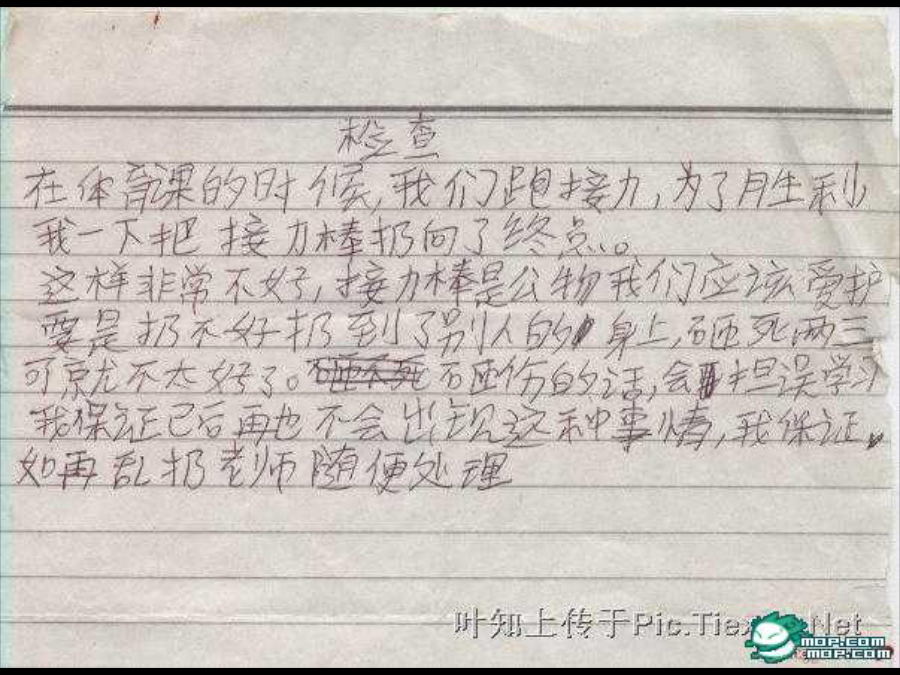 检查
在体育课的时候,我们跑接力,为了胜利
我一下把接力棒扔向了终点。
这样非常不好,接力棒是公物我们应该爱护
要是扔不好扔到了别人的身上,砸死两三
可就不太好了。砸不死砸伤的话,会担误学习
我保证已后再也不会出现这种事情,我保证,
如再乱扔老师随便处理
叶知上传于Pic.Tie Net
MOP.COM
MOP.COM